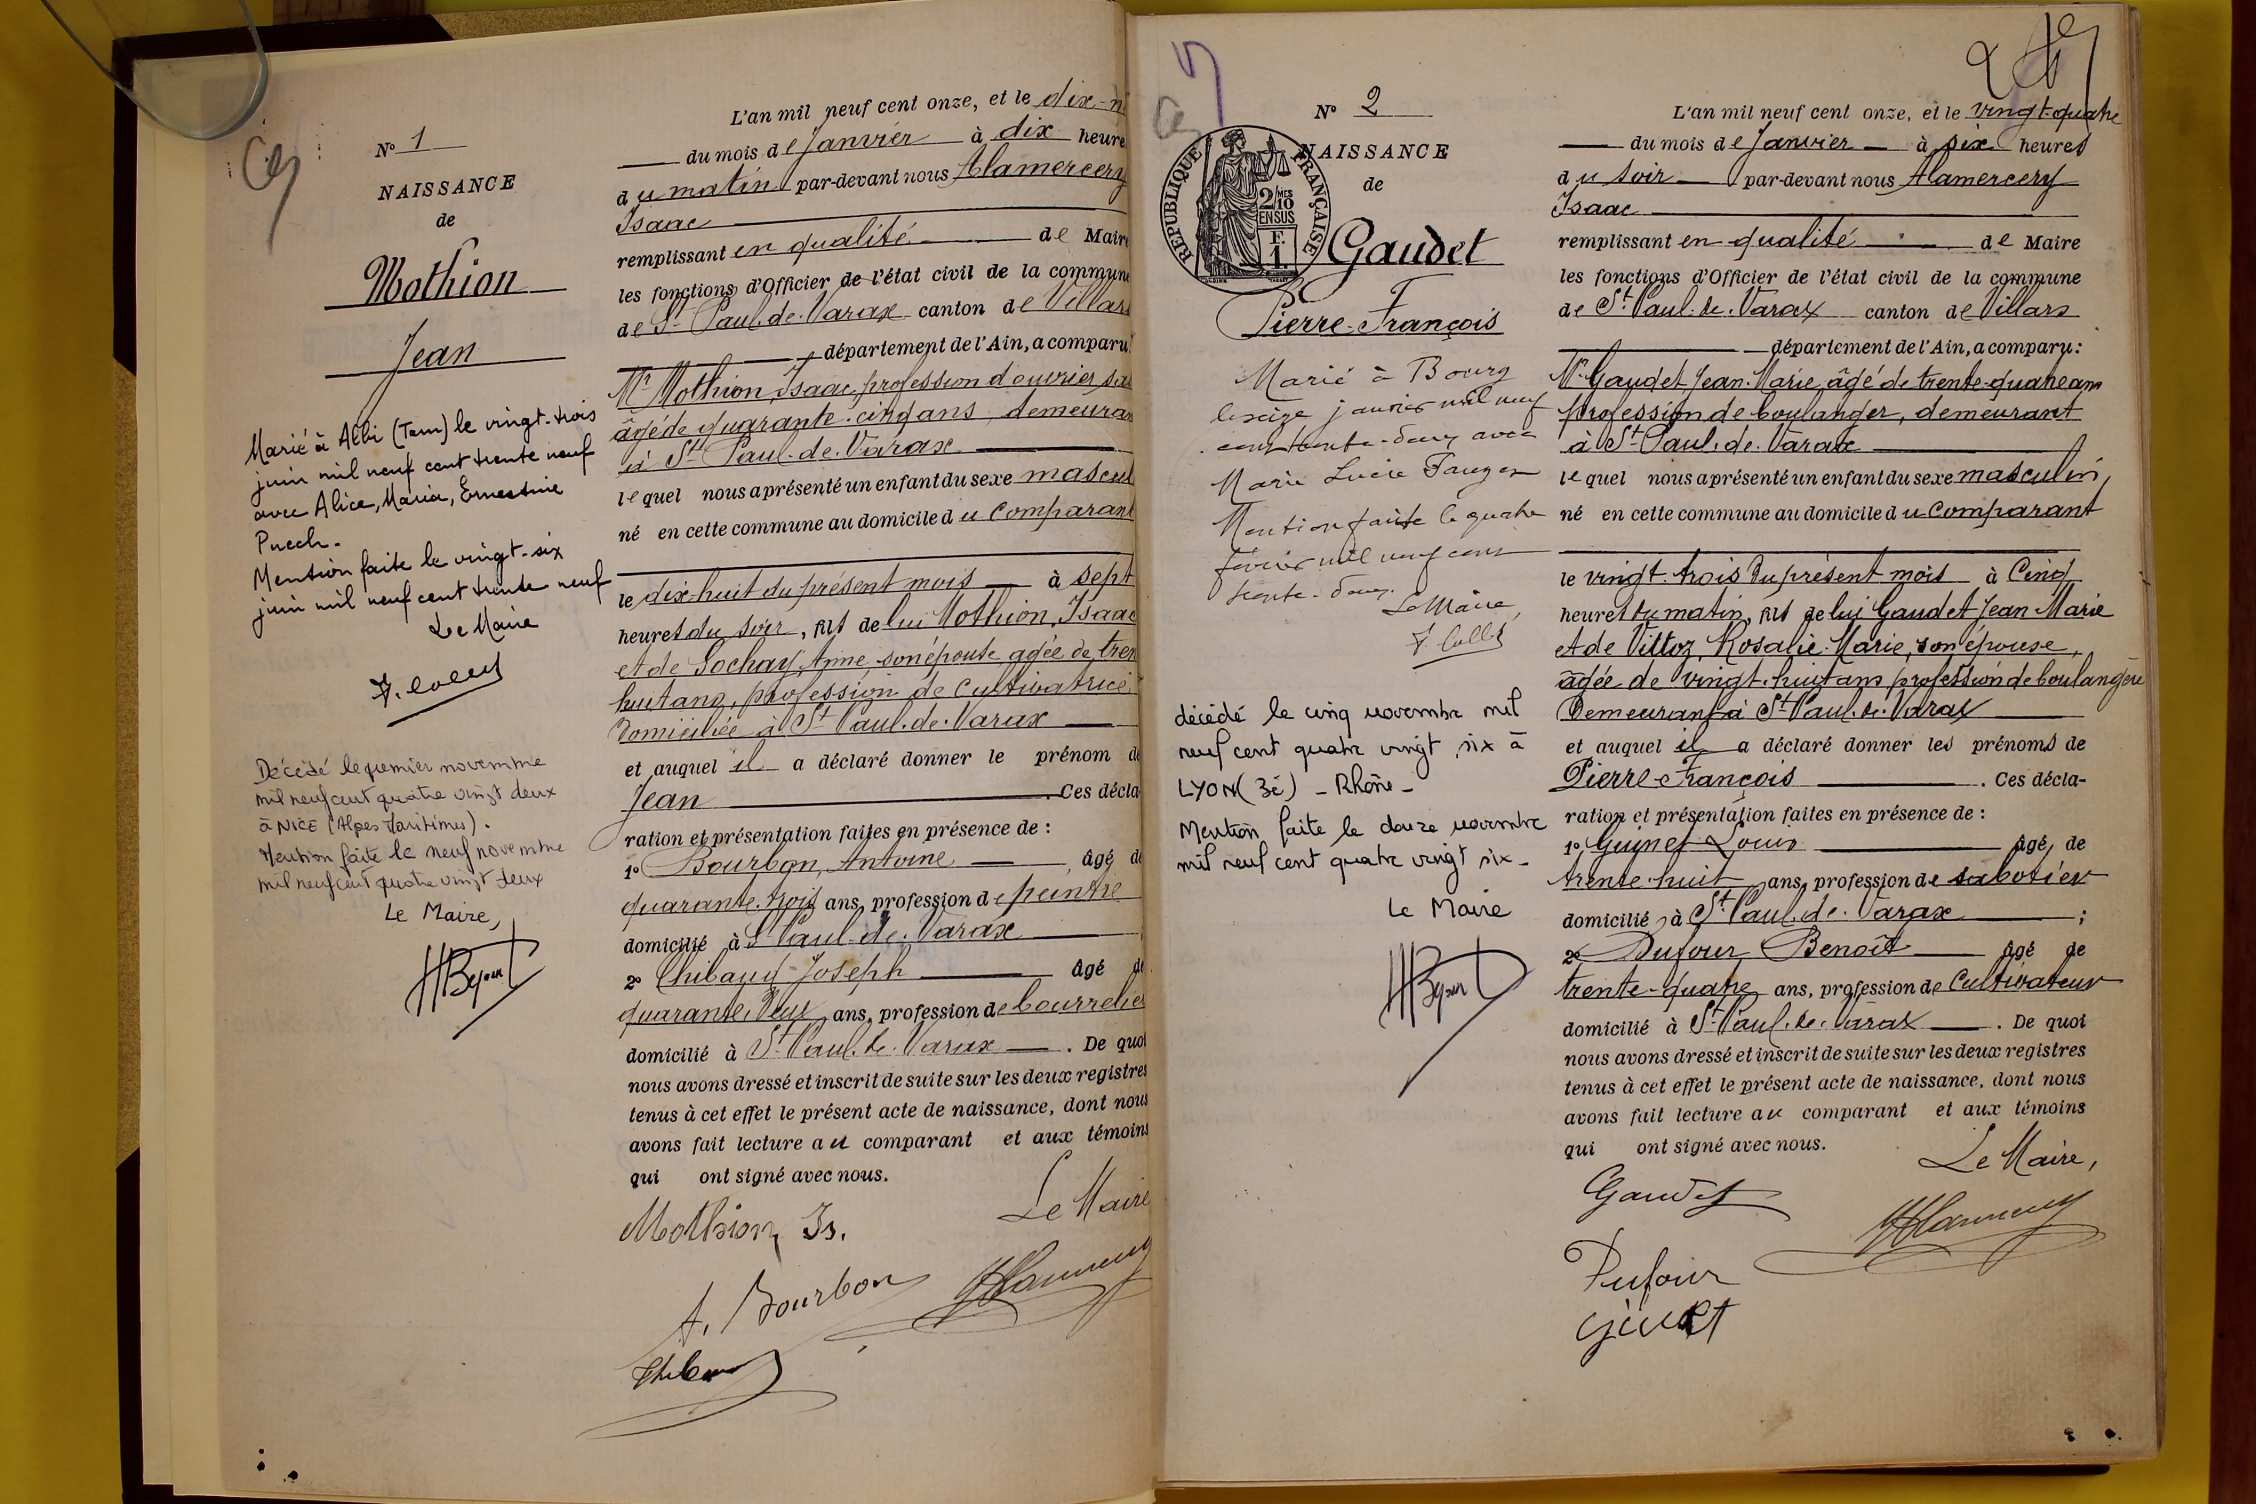 N° 1
NAISSANCE
de
Mothion
Jean
Marié à Albi (Tarn) le vingt-trois
juin mil neuf cent trente neuf
avec Alice, Maria, Ernestine
Puech.
Mention faite le vingt-six
juin mil neuf cent trente neuf
Le Maire
Décédé le premier novembre
mil neuf cent quatre vingt deux
à NICE (Alpes Maritimes).
Mention faite le neuf novembre
mil neuf cent quatre vingt deux
Le Maire,
L'an mil neuf cent onze, et le dix-n
du mois de Janvier à dix heure
du matin par-devant nous Alamercery
Isaac
remplissant en qualité de Maire
les fonctions d'Officier de l'état civil de la commune
de St Paul.de.Varax canton de Villars
département de l'Ain, a comparu:
Mr Mothion, Isaac, profession d'ouvrier
âgé de quarante-cinq ans, demeuran
à St Paul.de.Varax
lequel nous a présenté un enfant du sexe mascul
né en cette commune au domicile du Comparant
le dix-huit du présent mois à sept
heures du soir, fils de lui Mothion, Isaac
et de Sochay, Anne, son épouse agée de tren
huit ans, profession de Cultivatrice,
Domiciliée à St Paul.de.Varax
et auquel il a déclaré donner le prénom de
Jean . Ces décla-
ration et présentation faites en présence de :
1° Bourbon, Antoine , âgé de
quarante-trois ans, profession de peintre
domicilié à St Paul.de.Varax
2° Thibaud Joseph âgé de
quarante-deux ans, profession de bourrelier
domicilié à St Paul.de.Varax . De quoi
nous avons dressé et inscrit de suite sur les deux registres
tenus à cet effet le présent acte de naissance, dont nous
avons fait lecture au comparant et aux témoins
qui ont signé avec nous.
Le Maire
Mothion Is.
A. Bourbon
N° 2
NAISSANCE
de
REPUBLIQUE FRANÇAISE
2/10 MES
EN SUS
F.
1.
Gaudet
Pierre-François
Marié à Bourg
le seize janvier mil neuf
cent trente-deux avec
Marie Lucie
Mention faite le quatre
février mil neuf cent
trente-deux.
Le Maire,
décédé le cinq novembre mil
neuf cent quatre vingt six à
LYON (3è) - Rhône -
Mention faite le douze novembre
mil neuf cent quatre vingt six -
Le Maire
L'an mil neuf cent onze, et le vingt-quatre
du mois de Janvier à six heures
du soir par-devant nous Alamercery
Isaac
remplissant en qualité de Maire
les fonctions d'Officier de l'état civil de la commune
de St Paul.de.Varax canton de Villars
département de l'Ain, a comparu:
Mr Gaudet Jean-Marie, âgé de trente-quatre ans
profession de boulanger, demeurant
à St Paul.de.Varax
lequel nous a présenté un enfant du sexe masculin,
né en cette commune au domicile du Comparant
le vingt-trois du présent mois à Cinq
heures du matin, fils de lui Gaudet Jean Marie
et de Vittoz, Rosalie-Marie, son épouse,
âgée de vingt-huit ans profession de boulangère
Demeurant à St Paul.de.Varax
et auquel il a déclaré donner les prénoms de
Pierre-François . Ces décla-
ration et présentation faites en présence de :
1° Guinet Louis âgé, de
trente-huit ans, profession de sabotier
domicilié à St Paul.de.Varax ;
2° Dufour Benoît âgé de
trente-quatre ans, profession de Cultivateur
domicilié à St Paul.de.Varax . De quoi
nous avons dressé et inscrit de suite sur les deux registres
tenus à cet effet le présent acte de naissance, dont nous
avons fait lecture au comparant et aux témoins
qui ont signé avec nous.
Le Maire,
Gaudet
Dufour
Guinet